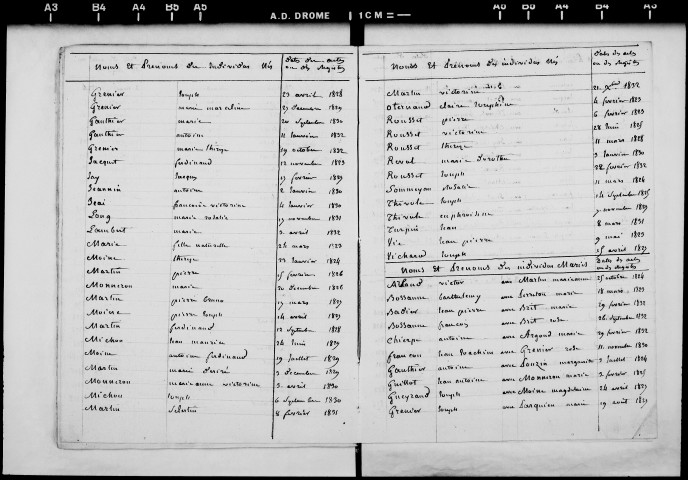 A3 B4 A4 B5 A5 A.D. DROME 1CM A6 B6 A4 B4 A3
Noms et Prénoms des individus Nés
Dates des actes
ou des Registres
Grenier joseph 23 avril 1828
Grenier marie 1829
Gauthier marie 20 Septembre 1830
Gauthier antoine 11 Janvier 1832
Grenier marie thérèse 29 octobre 1832
Jacquet ferdinand 12 novembre 1823
Jay Jacques 17 fevrier 1829
Jeannin antoine 2 Janvier 1830
françoise victorine 4 Janvier 1830
Long marie rosalie 17 novembre 1831
Lambert marie 3 avril 1832
Marie fille naturelle 24 mars 1823
Moine thérèse 22 Janvier 1824
Martin pierre 15 fevrier 1826
Monneron marie 20 Decembre 1826
Martin pierre 17 mars 1827
Moine pierre joseph 14 avril 1827
Martin ferdinand 12 Septembre 1828
Michon jean maurice 24 Juin 1829
Moine antoine ferdinand 19 Juillet 1829
Martin marie désirée 3 Decembre 1829
Monneron marie anne victorine 3 avril 1830
Michon joseph 6 Septembre 1830
Martin 8 fevrier 1831
Noms et Prénoms des individus Nés
Dates des actes
ou des Registres
Martin victorine 1832
claire Joséphine 4 fevrier 1823
Rousset pierre 6 fevrier 1823
Rousset victorine 28 Juin 1825
Rousset thérèse 11 mars 1828
Reval marie Dorothée 3 Janvier 1830
Rousset joseph 28 fevrier 1832
Sommeyan rosalie 11 mars 1826
Thivole joseph 14 Septembre 1825
Thivole euphrosine 7 novembre 1829
Turpin jean 8 mars 1831
Vie jean pierre 9 mai 1823
Vichard joseph 15 avril 1827
Noms et Prénoms des individus Mariés
Dates des actes
ou des Registres
Arbaud victor avec Martin marianne 25 octobre 1826
Bossanne barthelemy avec marie 18 mars 1823
Badier jean pierre avec Brit marie 29 fevrier 1832
Bossanne françois avec Brit rose 26 Septembre 1832
antoine avec Argoud marie 29 fevrier 1832
francou jean Joachim avec Grenier rose 11 novembre 1830
Gauthier antoine avec marguerite 3 Juillet 1824
Guillot jean antoine avec Monneron marie 3 fevrier 1825
Gueyraud joseph avec Moine magdelaine 24 avril 1827
Grenier joseph avec marie 19 août 1827